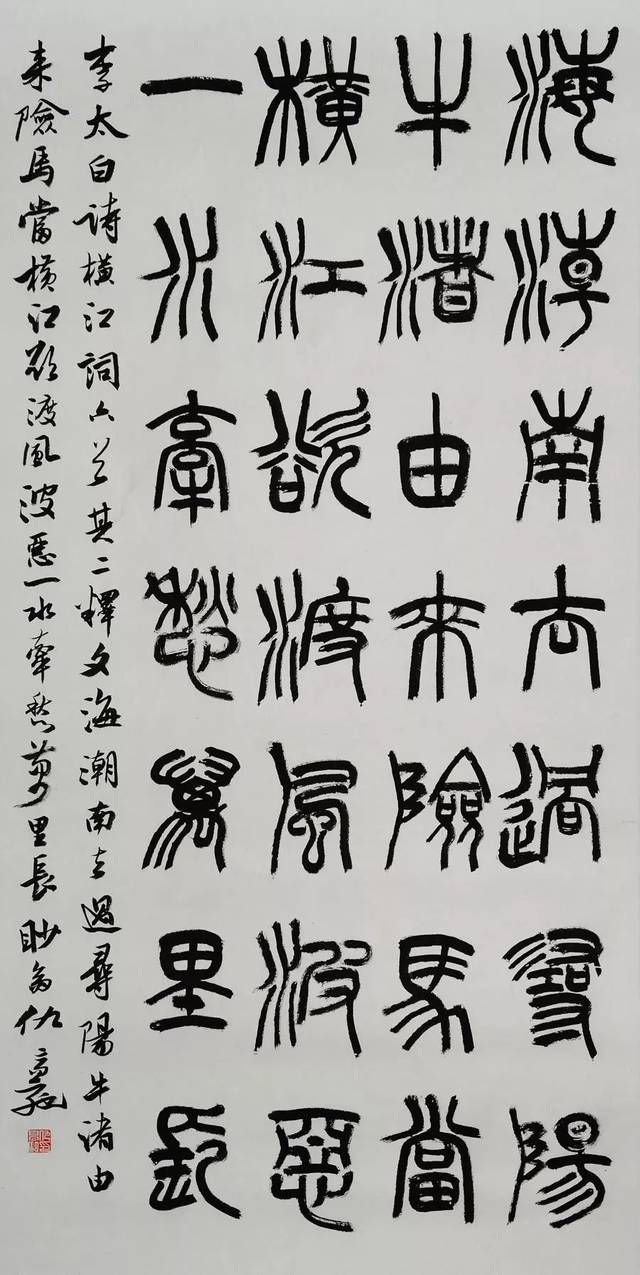 海潮南去過尋陽
牛渚由來險馬當
橫江欲渡風波惡
一水牽愁萬里長
李太白詩橫江詞六首其二釋文海潮南去過尋陽牛渚由
來險馬當橫江欲渡風波惡一水牽愁萬里長